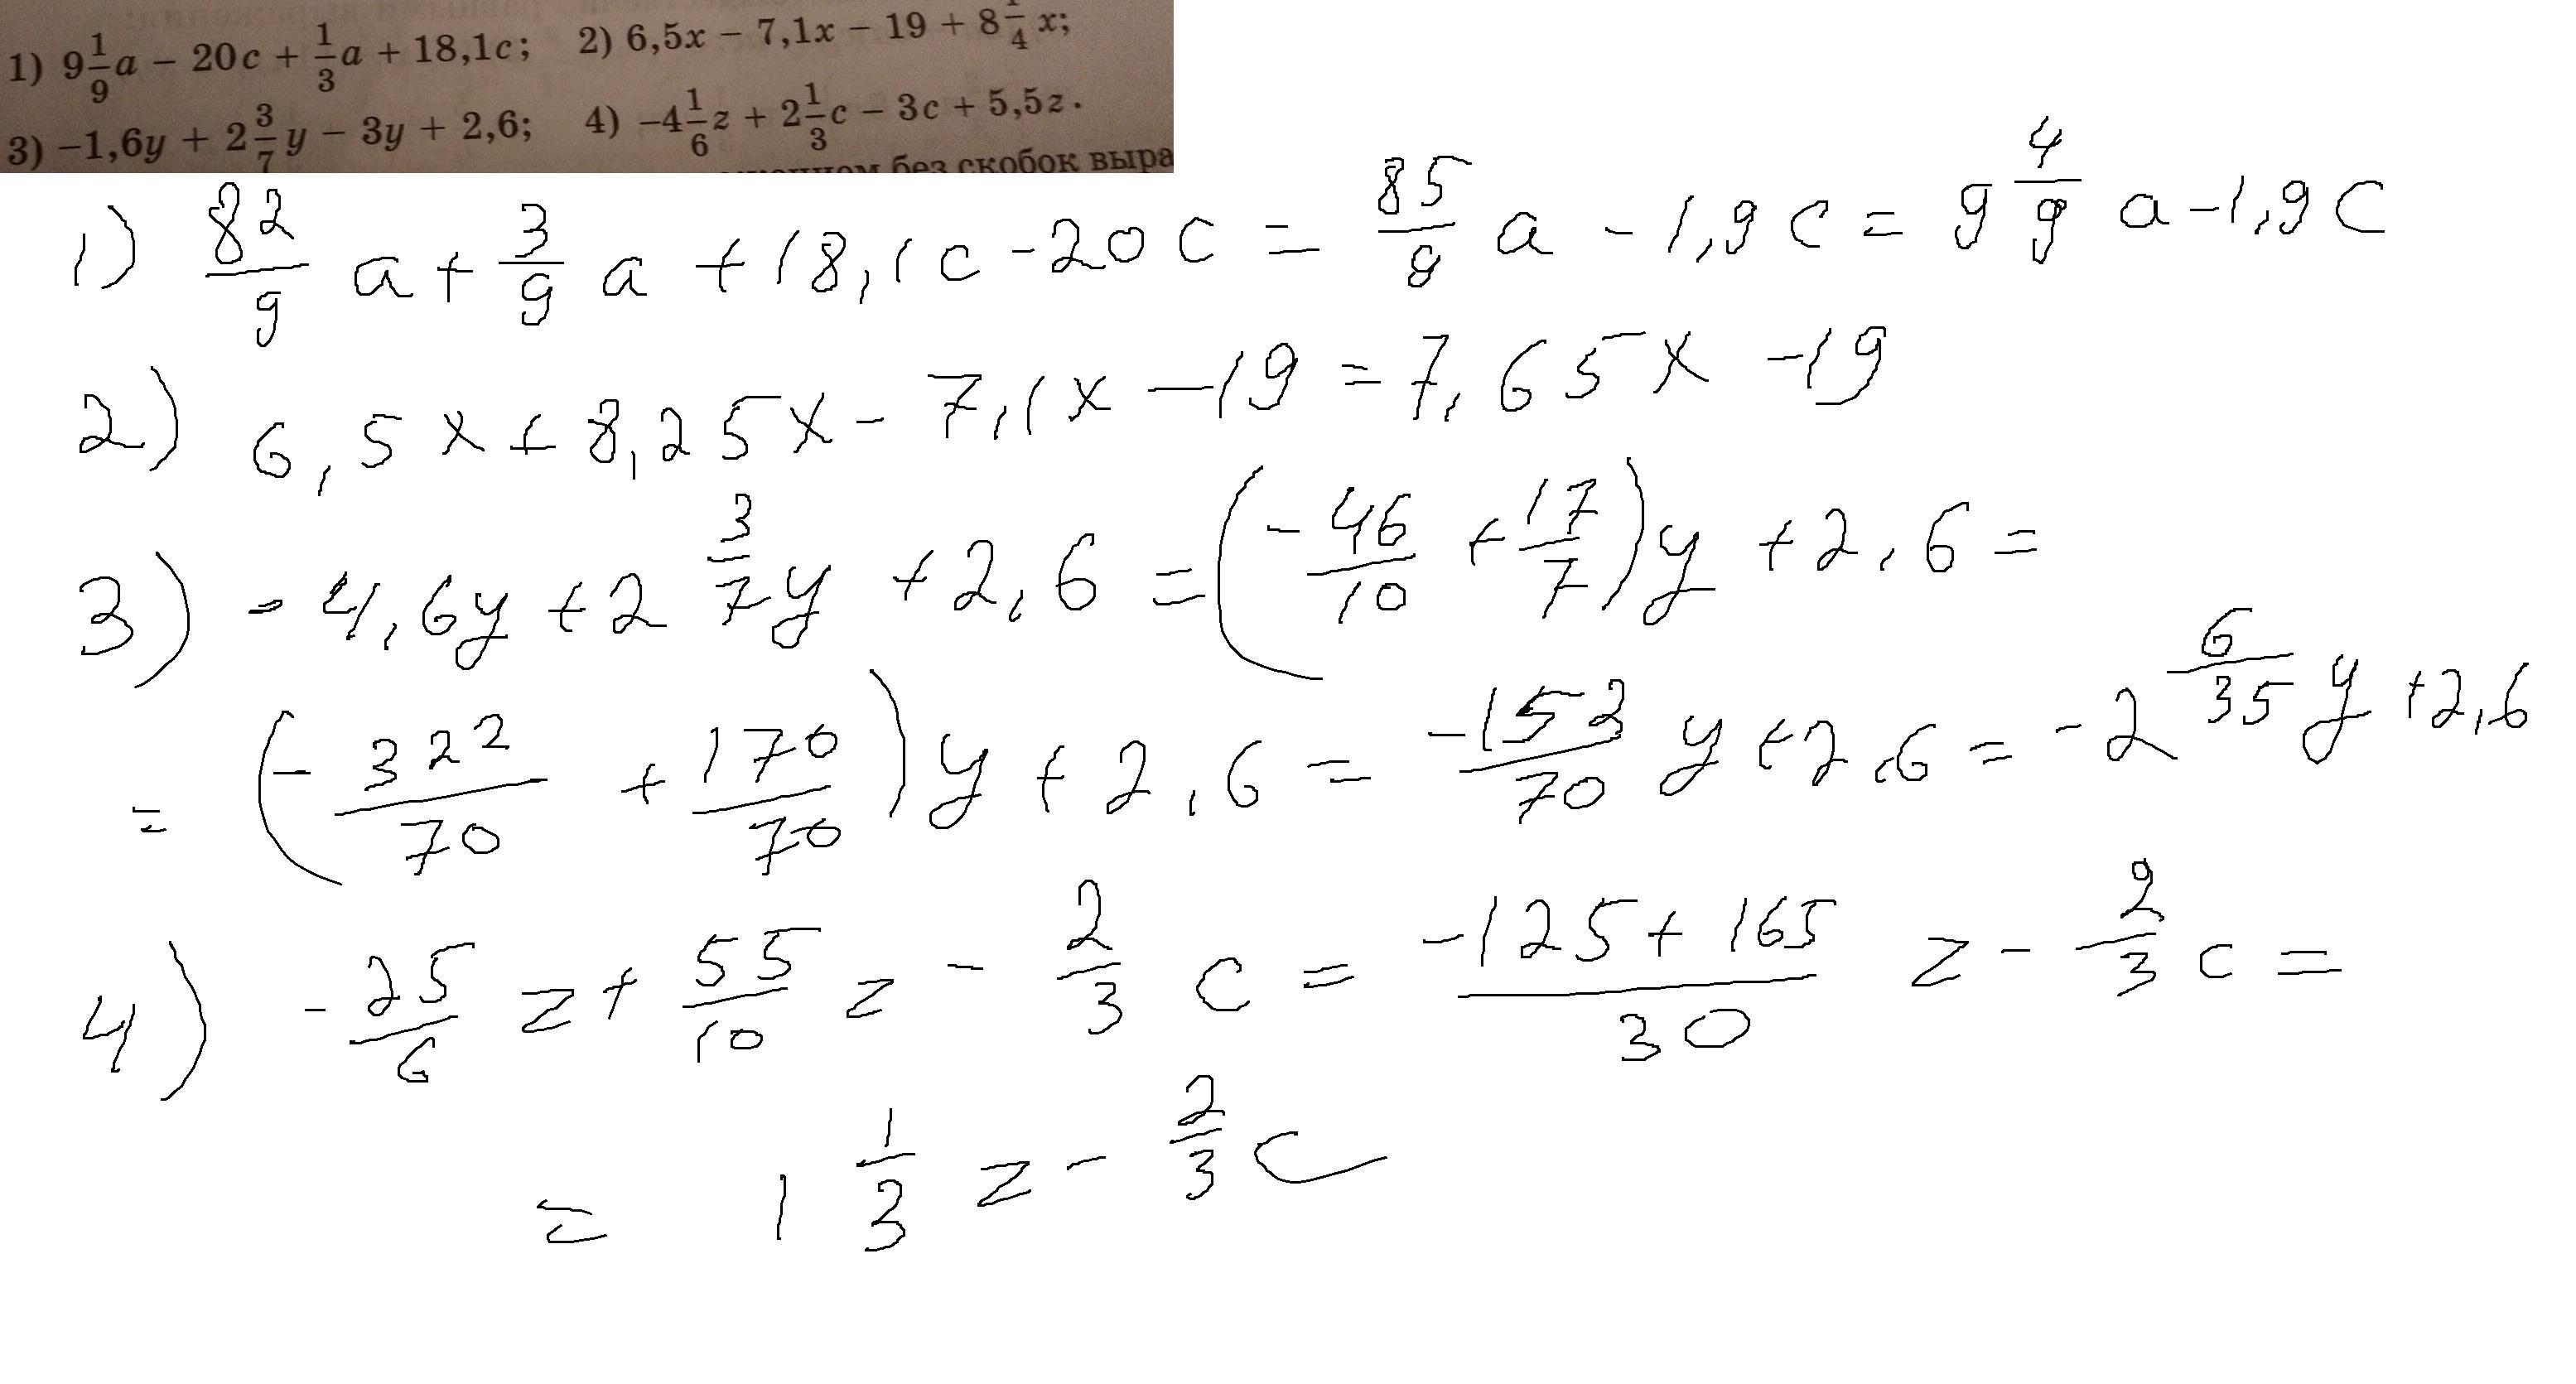 1) 9 1/9 a − 20c + 1/3 a + 18,1c; 2) 6,5x − 7,1x − 19 + 8 1/4 x;
3) −1,6y + 2 3/7 y − 3y + 2,6; 4) −4 1/6 z + 2 1/3 c − 3c + 5,5z.
без скобок выра
1) 82/9 a + 3/9 a + 18,1c - 20c = 85/9 a - 1,9c = 9 4/9 a - 1,9c
2) 6,5x + 8,25x - 7,1x - 19 = 7,65x - 19
3) - 4,6y + 2 3/7 y + 2,6 = (- 46/10 + 17/7) y + 2,6 =
= (- 322/70 + 170/70) y + 2,6 = -152/70 y + 2,6 = -2 6/35 y + 2,6
4) - 25/6 z + 55/10 z - 2/3 c = (-125 + 165)/30 z - 2/3 c =
= 1 1/3 z - 2/3 c